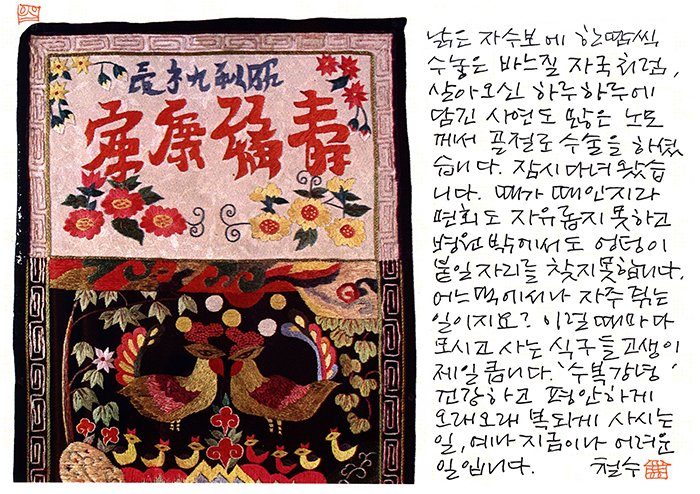 昭和九
壽福康寧
낡은 자수보에 한땀씩
수놓은 바느질 자국처럼,
살아오신 하루하루에
담긴 사연도 많은 노모
께서 골절로 수술을 하셨
습니다. 잠시 다녀 왔습
니다. 때가 때인지라
면회도 자유롭지 못하고
병원 밖에서도 엉덩이
붙일 자리를 찾지 못합니다.
어느 댁에서나 자주 겪는
일이지요? 이럴 때마다
모시고 사는 식구들 고생이
제일 큽니다. '수복강녕'
건강하고 평안하게
오래오래 복되게 사시는
일, 예나 지금이나 어려운
일입니다. 철수